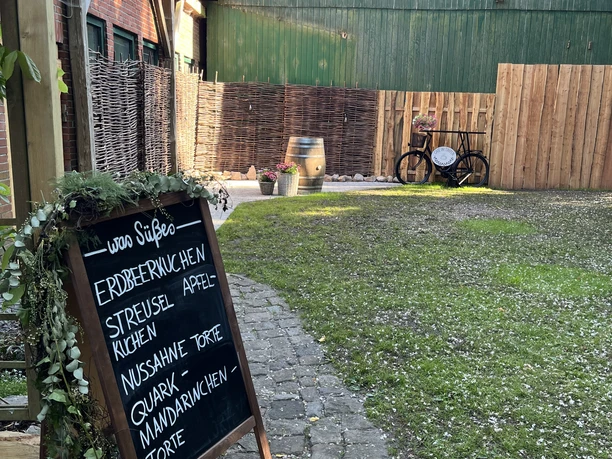 was Süßes
ERDBEERKUCHEN
STREUSEL APFEL-
KUCHEN
NUSSAHNE TORTE
QUARK -
MANDARINCHEN -
TORTE